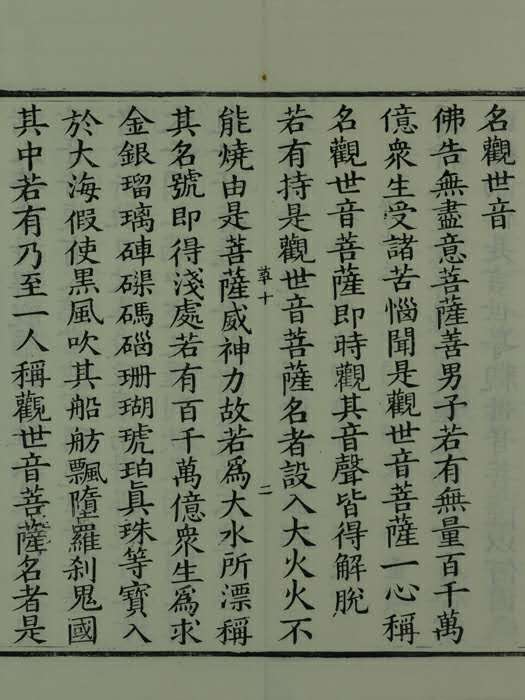 名觀世音
佛告無盡意菩薩善男子若有無量百千萬
億衆生受諸苦惱聞是觀世音菩薩一心稱
名觀世音菩薩即時觀其音聲皆得解脫
若有持是觀世音菩薩名者設入大火火不
草十 二
能燒由是菩薩威神力故若爲大水所漂稱
其名號即得淺處若有百千萬億衆生爲求
金銀瑠璃硨磲碼碯珊瑚琥珀眞珠等寶入
於大海假使黒風吹其船舫飄墮羅刹鬼國
其中若有乃至一人稱觀世音菩薩名者是